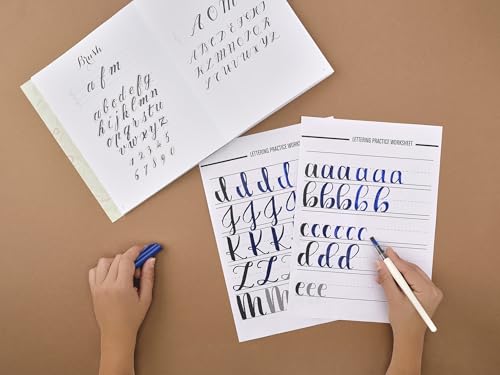 Brush
a f m
a b c d e f g
h i j k l m n
o p q r s t u
v w x y z
1 2 3 4 5
6 7 8 9 0
A O M
A B C D E F G H I
J K L M N O P Q R
S T U V W X Y Z
LETTERING PRACTICE WORKS
d d d d d
K K K K
L L L
M M M
LETTERING PRACTICE WORKSHEET
a a a a a a a
b b b b b
c c c c c c
d d d d
e e e